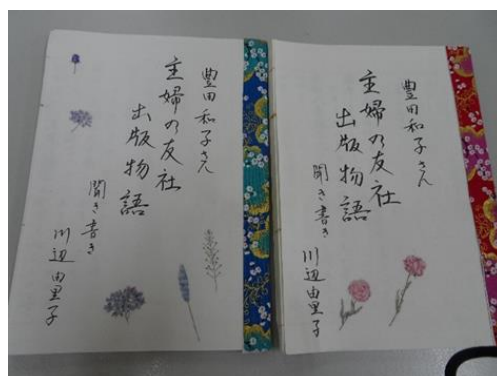 豊田和子さん
主婦の友社
出版物語
聞き書き
川辺由里子
豊田和子さん
主婦の友社
出版物語
聞き書き
川辺由里子